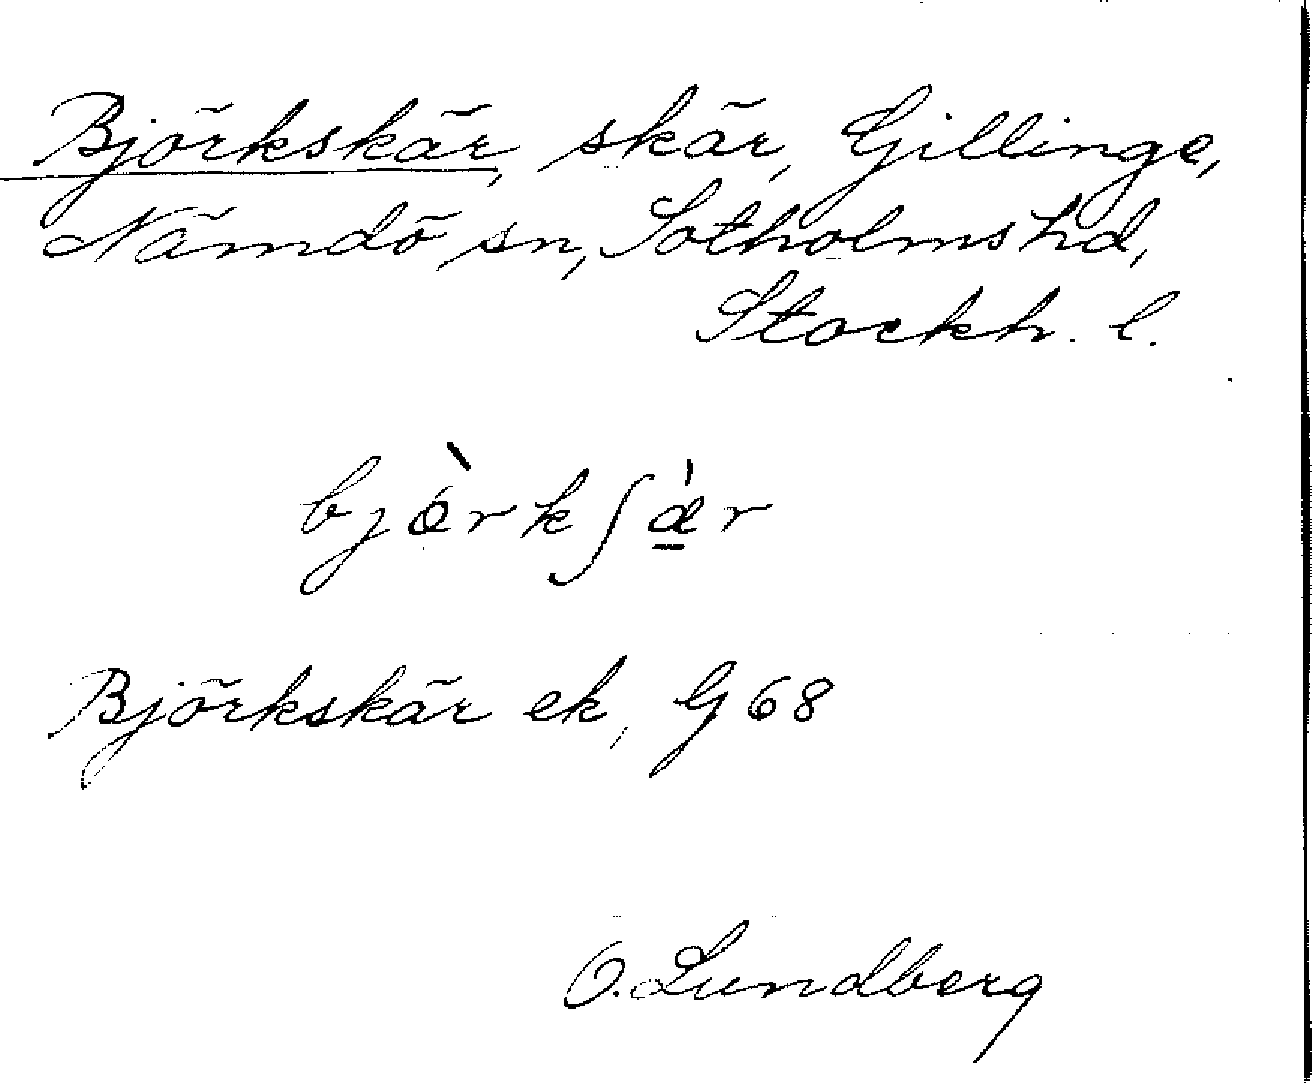 Björkskär, skär, Gillinge,
Nämdö sn, Sotholms hd,
Stockh. l.
bjö̀rkʃæ̲̀r
Björkskär ek, G 68
O. Lundberg